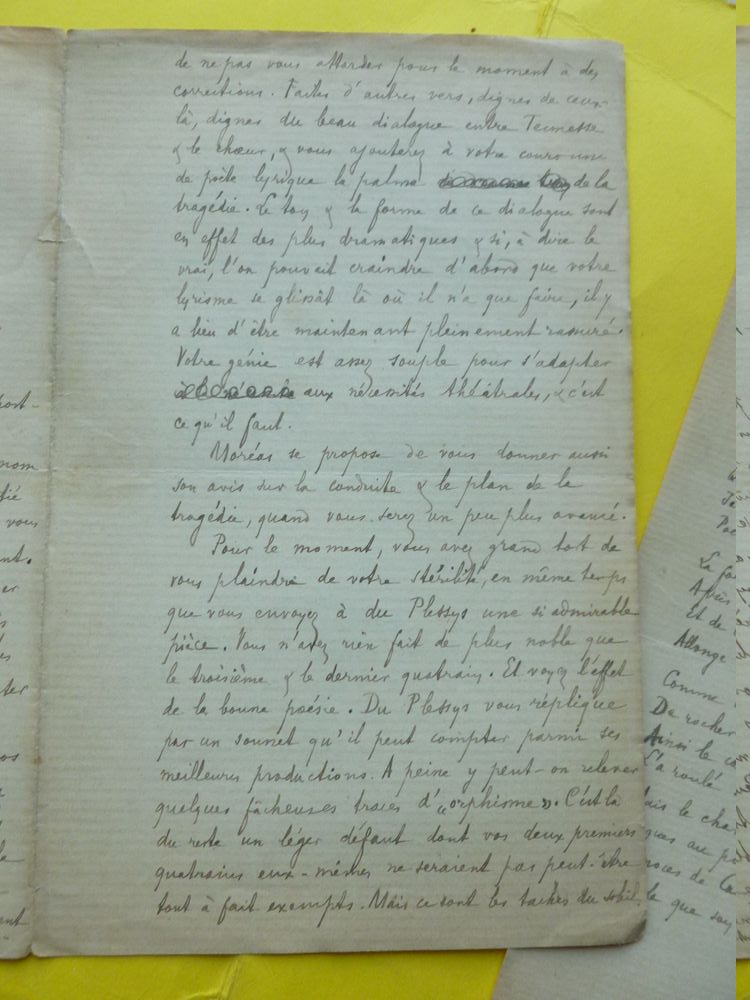 de ne pas vous attarder pour le moment à des
corrections. Faites d'autres vers, dignes de ceux-
là, dignes du beau dialogue entre Tecmesse
& le chœur, & vous ajouterez à votre couronne
de poète lyrique la palme de la
tragédie. Le ton & la forme de ce dialogue sont
en effet des plus dramatiques & si, à dire le
vrai, l'on pouvait craindre d'abord que votre
lyrisme se glissât là où il n'a que faire, il y
a lieu d'être maintenant pleinement rassuré.
Votre génie est assez souple pour s'adapter
aux nécessités théâtrales, & c'est
ce qu'il faut.
Moréas se propose de vous donner aussi
son avis sur la conduite & le plan de la
tragédie, quand vous serez un peu plus avancé.
Pour le moment, vous avez grand tort de
vous plaindre de votre stérilité, en même temps
que vous envoyez à du Plessys une si admirable
pièce. Vous n'avez rien fait de plus noble que
le troisième & le dernier quatrain. Et voyez l'effet
de la bonne poésie. Du Plessys vous réplique
par un sonnet qu'il peut compter parmi ses
meilleures productions. A peine y peut-on relever
quelques fâcheuses traces d'"orphisme". C'est là
du reste un léger défaut dont vos deux premiers
quatrains eux-mêmes ne seraient pas peut-être
tout à fait exempts. Mais ce sont les taches du soleil,
nom
vous
Et de
Allonge
Comme
Du rocher
Ainsi le
L'a roulé
que